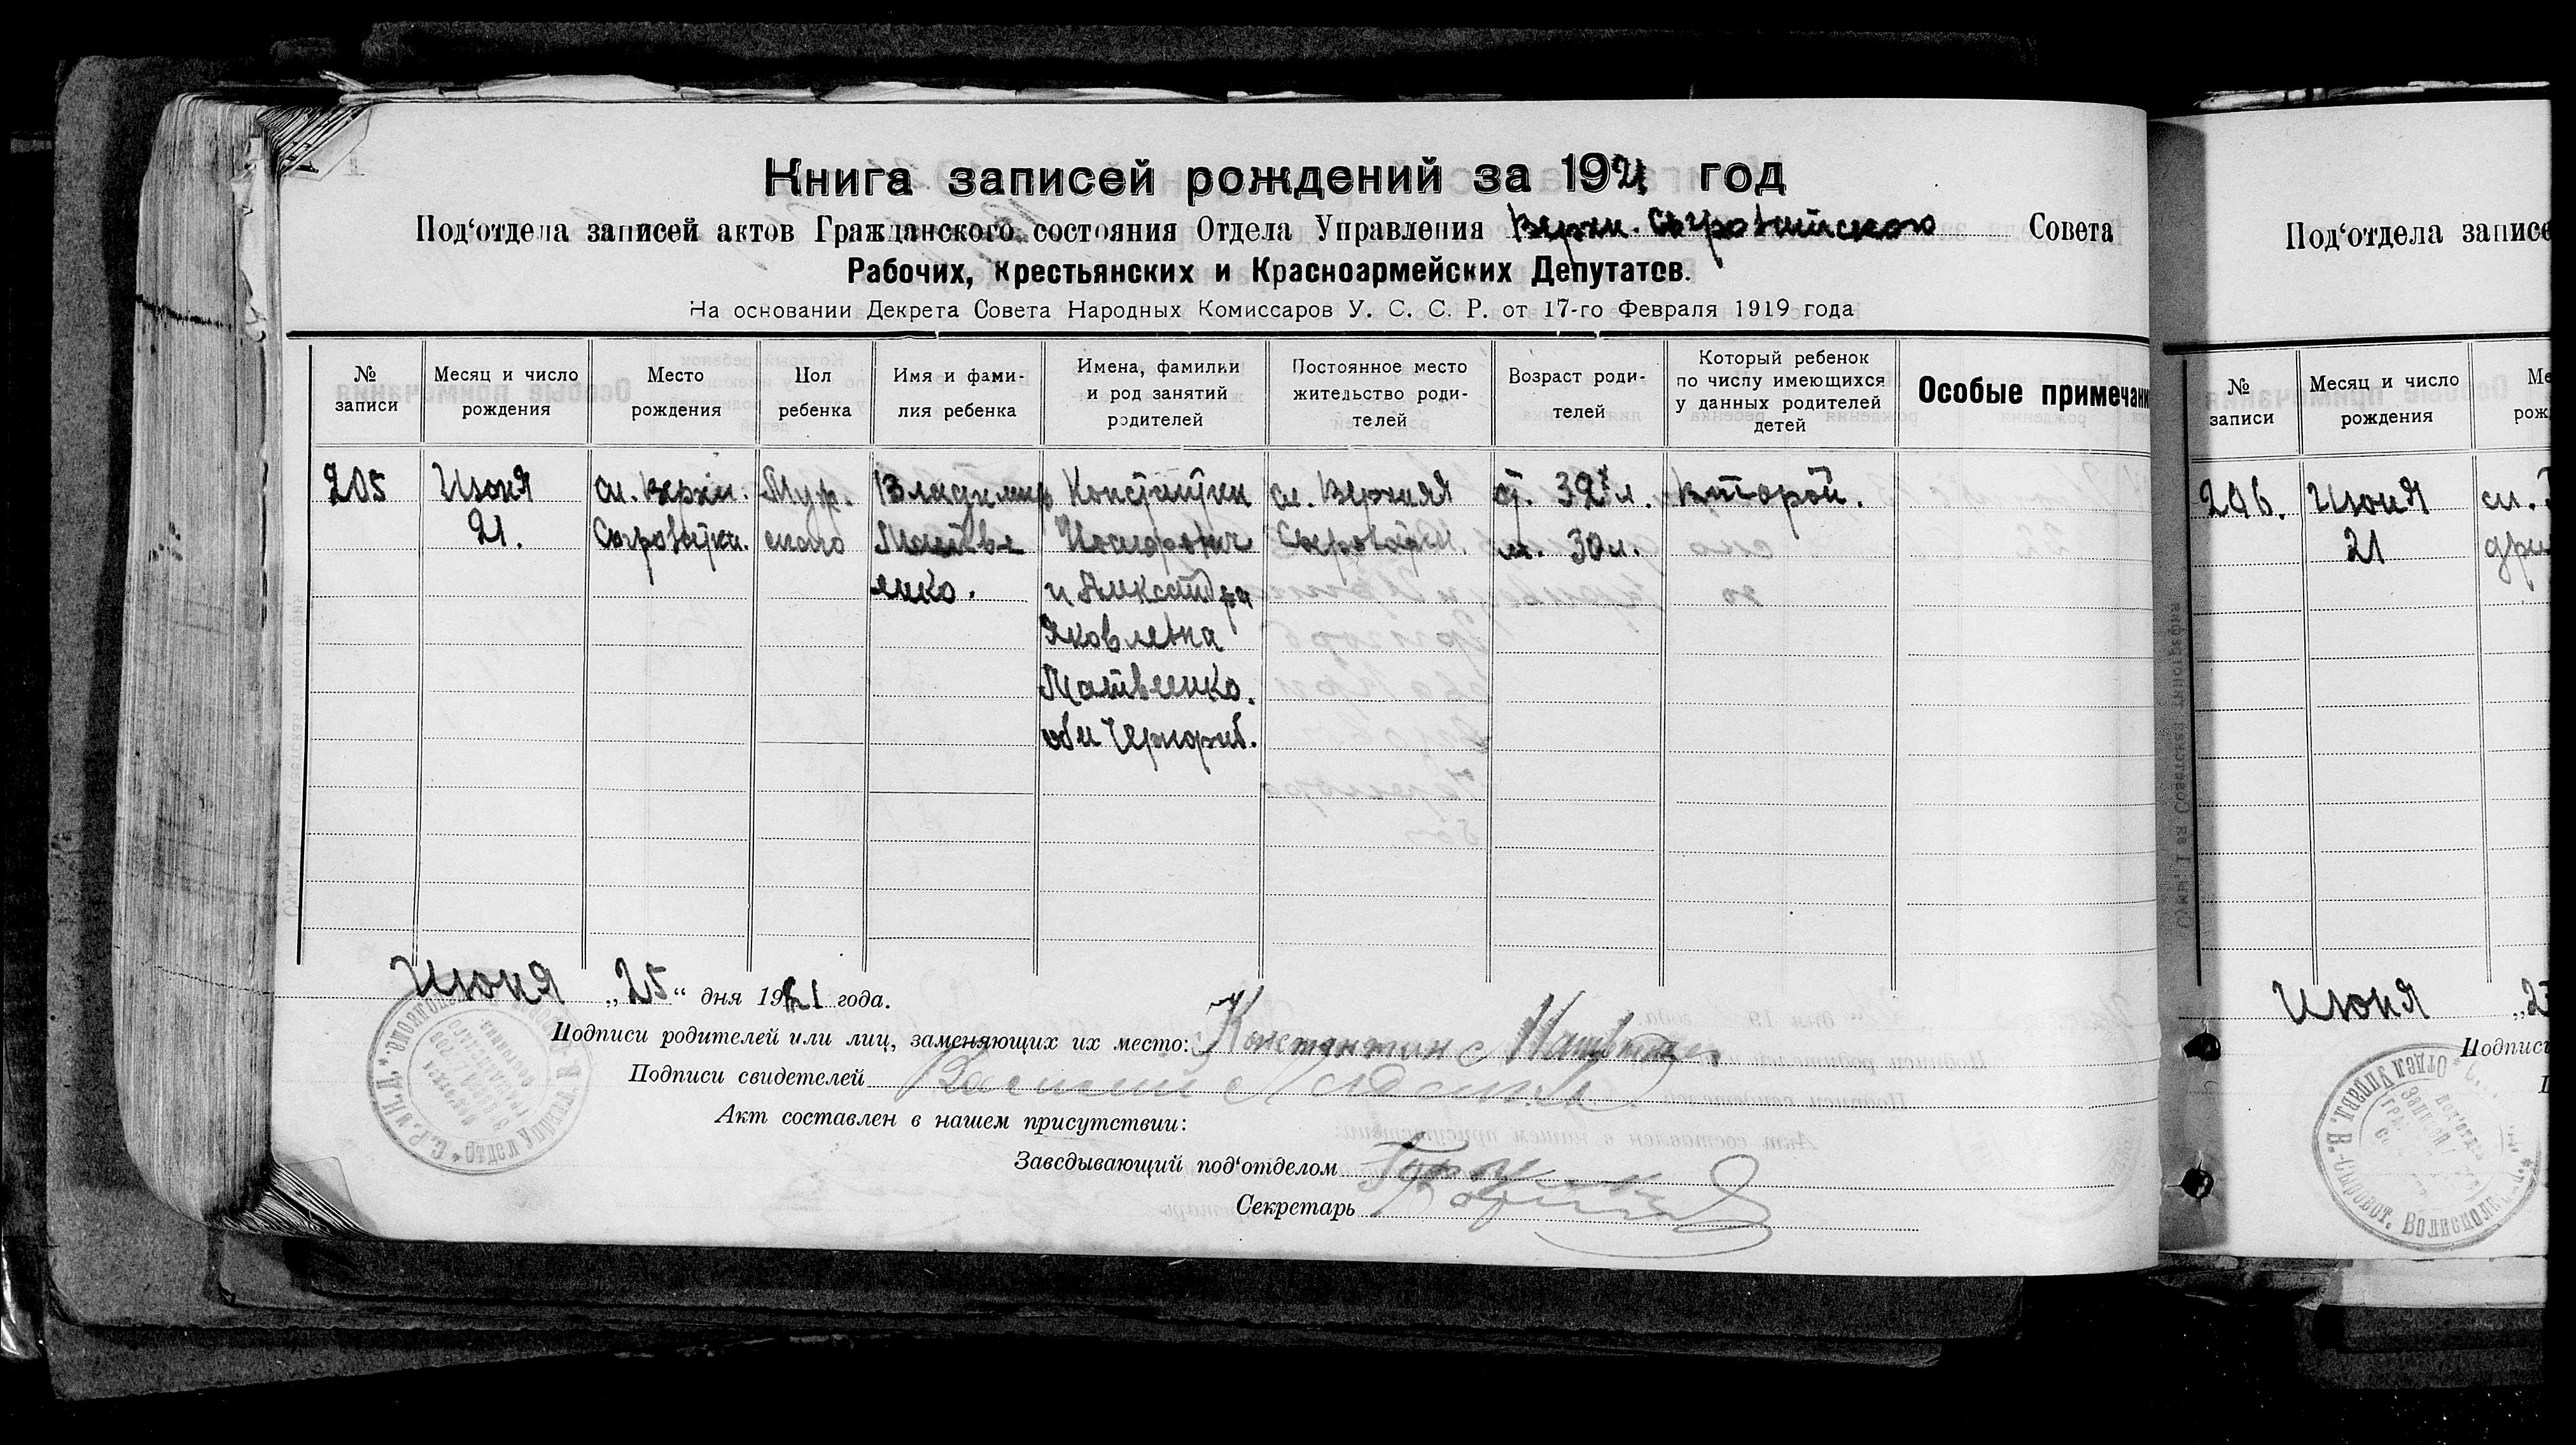 Книга записей рождений за 1921 год
Под‘отдела записей актов Гражданского состояния Отдела Управления Верхн. Сыроватского Совета
Рабочих, крестьянских и Красноармейских Депутатов.
На основании Декрета Совета Народных Комиссаров У. С. С. Р. от 17-го Февраля 1919 года
№ записи
Месяц и число рождения
Место рождения
Пол ребенка
Имя и фами-
лия ребенка
Имена, фамилии
и род занятий
родителей
Постоянное место
жительство роди-
телей
Возраст роди-
телей
Который ребенок
по числу имеющихся
у данных родителей
детей
Особые примечан
205
Июня
21.
сл. Верхн.
Сыроватки.
Муж.
ского
Владимир
Матве
енко.
Константин
и Александра
Яковлевна
Матвеенко.
оба
сл. Верхняя
Сыроватка.
о. 32 л.
м. 30 л.
второй.
Июня „25“ дня 1921 года.
Подписи родителей или лиц, заменяющих их место: Константин
Подписи свидетелей
Акт составлен в нашем присутствии:
Заведывающий под‘отделом
Секретарь
Под‘отдела записе
№ записи
Месяц и число рождения
Ме
рож
206.
Июня
21
сл.
Июня „2
Подписи